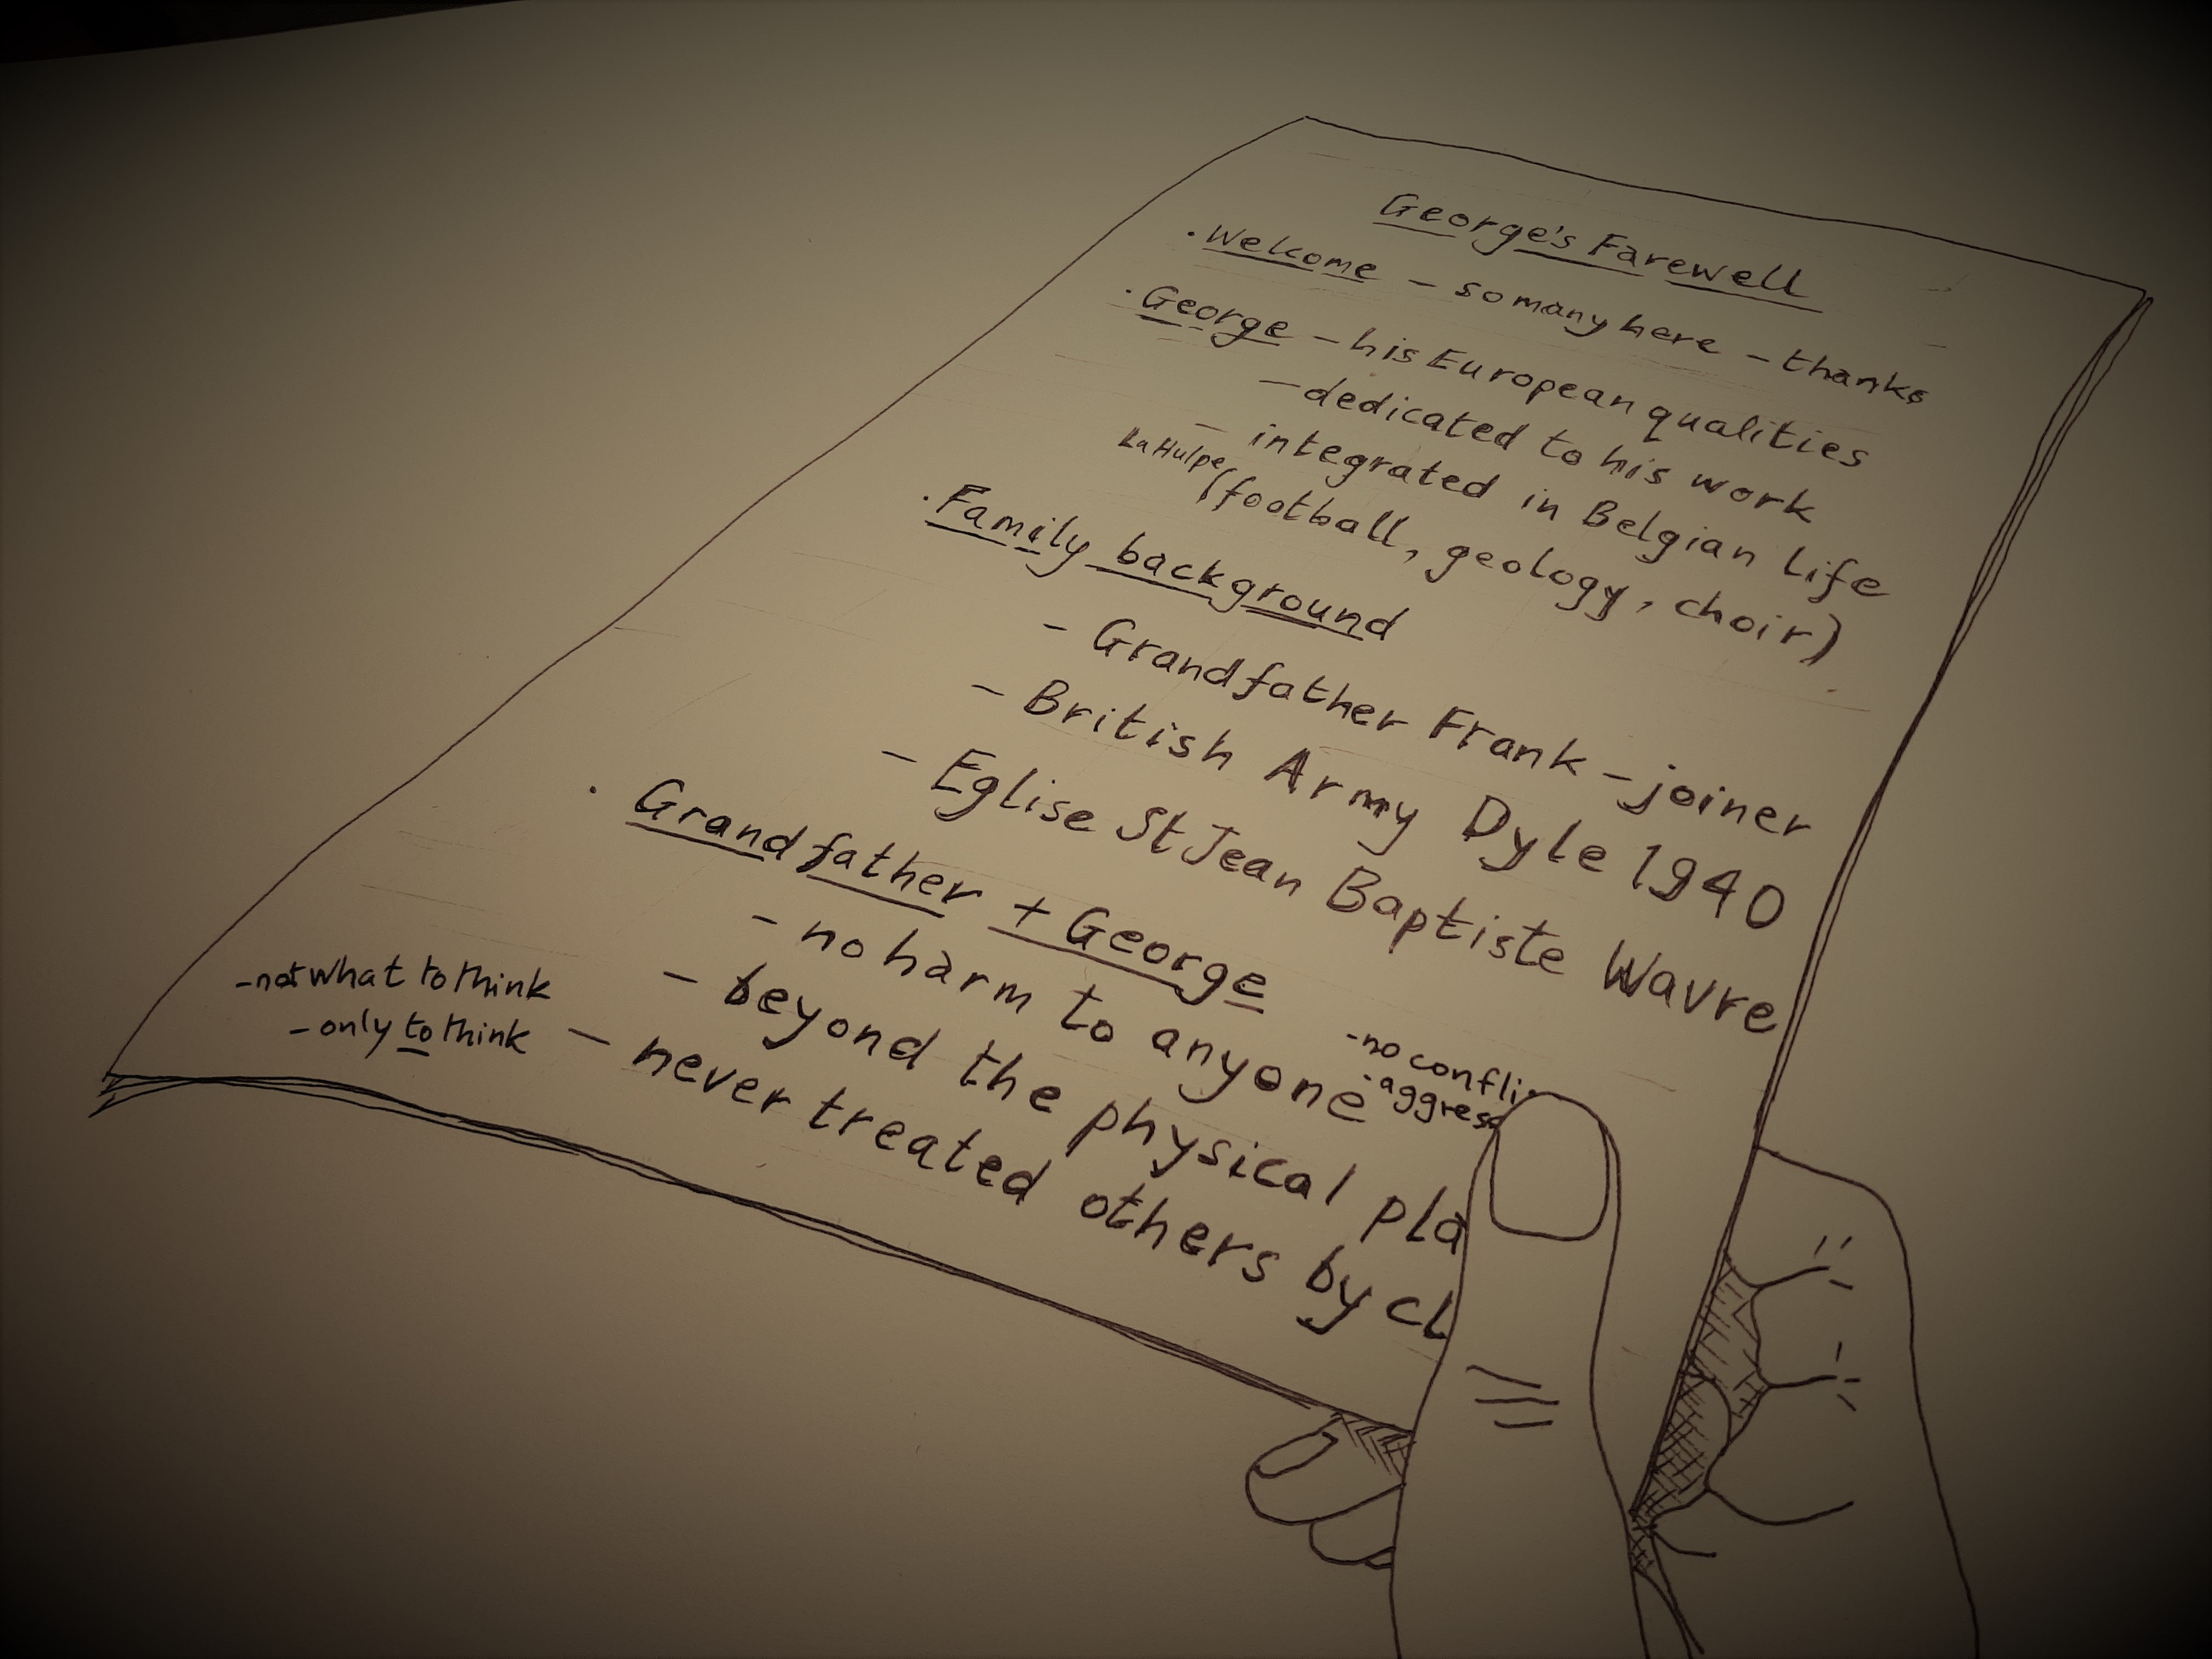 George's Farewell
· Welcome - so many here - thanks
· George - his European qualities
- dedicated to his work
- integrated in Belgian life
La Hulpe (football, geology, choir)
· Family background
- Grandfather Frank - joiner
- British Army Dyle 1940
- Eglise St Jean Baptiste Wavre
· Grandfather + George
- no harm to anyone
- no confli
- aggress
- beyond the physical pla
- never treated others by cl
- not what to think
- only to think